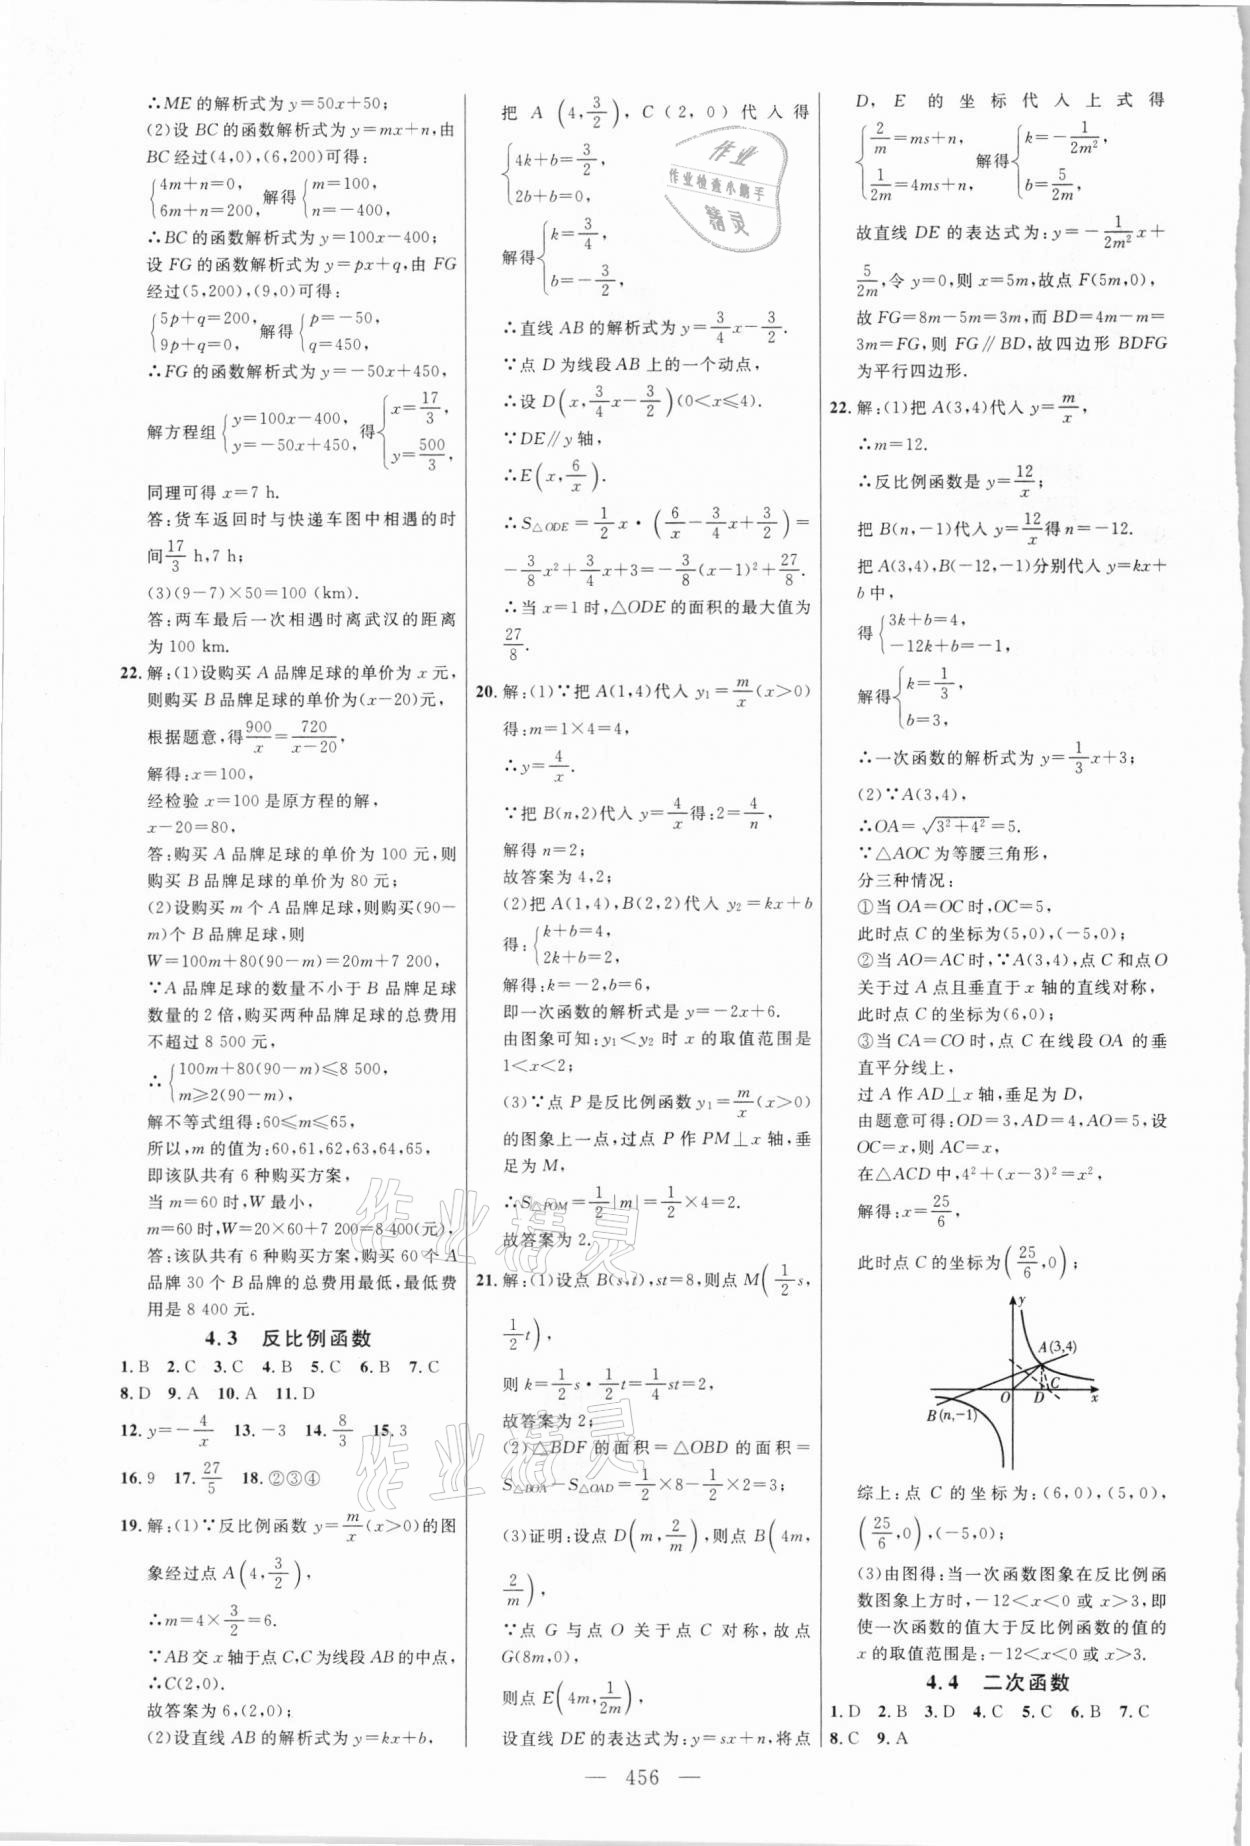 ∴ME的解析式为y=50x+50;
(2)设BC的函数解析式为y=mx+n,由
BC经过(4,0),(6,200)可得:
{4m+n=0, 6m+n=200, 解得{m=100, n=-400,
∴BC的函数解析式为y=100x-400;
设FG的函数解析式为y=px+q,由FG
经过(5,200),(9,0)可得:
{5p+q=200, 9p+q=0, 解得{p=-50, q=450,
∴FG的函数解析式为y=-50x+450,
解方程组{y=100x-400, y=-50x+450, 得{x=17/3, y=500/3,
同理可得x=7 h.
答:货车返回时与快递车图中相遇的时
间17/3 h,7 h;
(3)(9-7)×50=100 (km).
答:两车最后一次相遇时离武汉的距离
为100 km.
22.解:(1)设购买A品牌足球的单价为x元,
则购买B品牌足球的单价为(x-20)元,
根据题意,得900/x=720/(x-20),
解得:x=100,
经检验x=100是原方程的解,
x-20=80,
答:购买A品牌足球的单价为100元,则
购买B品牌足球的单价为80元;
(2)设购买m个A品牌足球,则购买(90-
m)个B品牌足球,则
W=100m+80(90-m)=20m+7 200,
∵A品牌足球的数量不小于B品牌足球
数量的2倍,购买两种品牌足球的总费用
不超过8 500元,
∴{100m+80(90-m)≤8 500, m≥2(90-m),
解不等式组得:60≤m≤65,
所以,m的值为:60,61,62,63,64,65,
即该队共有6种购买方案,
当m=60时,W最小,
m=60时,W=20×60+7 200=8 400(元),
答:该队共有6种购买方案,购买60个A
品牌30个B品牌的总费用最低,最低费
用是8 400元.
4.3 反比例函数
1.B 2.C 3.C 4.B 5.C 6.B 7.C
8.D 9.A 10.A 11.D
12.y=-4/x 13.-3 14.8/3 15.3
16.9 17.27/5 18.②③④
19.解:(1)∵反比例函数y=m/x(x>0)的图
象经过点A(4,3/2),
∴m=4×3/2=6.
∵AB交x轴于点C,C为线段AB的中点,
∴C(2,0).
故答案为6,(2,0);
(2)设直线AB的解析式为y=kx+b,
把A(4,3/2),C(2,0)代入得
{4k+b=3/2, 2b+b=0,
解得{k=3/4, b=-3/2,
∴直线AB的解析式为y=3/4x-3/2.
∵点D为线段AB上的一个动点,
∴设D(x,3/4x-3/2)(0<x≤4).
∵DE∥y轴,
∴E(x,6/x).
∴S△ODE=1/2x·(6/x-3/4x+3/2)=
-3/8x²+3/4x+3=-3/8(x-1)²+27/8.
∴当x=1时,△ODE的面积的最大值为
27/8.
20.解:(1)∵把A(1,4)代入y₁=m/x(x>0)
得:m=1×4=4,
∴y=4/x.
∵把B(n,2)代入y=4/x得:2=4/n,
解得n=2;
故答案为4,2;
(2)把A(1,4),B(2,2)代入y₂=kx+b
得:{k+b=4, 2k+b=2,
解得:k=-2,b=6,
即一次函数的解析式是y=-2x+6.
由图象可知:y₁<y₂时x的取值范围是
1<x<2;
(3)∵点P是反比例函数y₁=m/x(x>0)
的图象上一点,过点P作PM⊥x轴,垂
足为M,
∴S△POM=1/2|m|=1/2×4=2.
故答案为2.
21.解:(1)设点B(s,t),st=8,则点M(1/2s,
1/2t),
则k=1/2s·1/2t=1/4st=2,
故答案为2;
(2)△BDF的面积=△OBD的面积=
S△BOA-S△OAD=1/2×8-1/2×2=3;
(3)证明:设点D(m,2/m),则点B(4m,
2/m),
∵点G与点O关于点C对称,故点
G(8m,0),
则点E(4m,1/2m),
设直线DE的表达式为:y=sx+n,将点
D,E的坐标代入上式得
{2/m=ms+n, 1/2m=4ms+n, 解得{k=-1/2m², b=5/2m,
故直线DE的表达式为:y=-1/2m²x+
5/2m,令y=0,则x=5m,故点F(5m,0),
故FG=8m-5m=3m,而BD=4m-m=
3m=FG,则FG∥BD,故四边形BDFG
为平行四边形.
22.解:(1)把A(3,4)代入y=m/x,
∴m=12.
∴反比例函数是y=12/x;
把B(n,-1)代入y=12/x得n=-12.
把A(3,4),B(-12,-1)分别代入y=kx+
b中,
得{3k+b=4, -12k+b=-1,
解得{k=1/3, b=3,
∴一次函数的解析式为y=1/3x+3;
(2)∵A(3,4),
∴OA=√(3²+4²)=5.
∵△AOC为等腰三角形,
分三种情况:
①当OA=OC时,OC=5,
此时点C的坐标为(5,0),(-5,0);
②当AO=AC时,∵A(3,4),点C和点O
关于过A点且垂直于x轴的直线对称,
此时点C的坐标为(6,0);
③当CA=CO时,点C在线段OA的垂
直平分线上,
过A作AD⊥x轴,垂足为D,
由题意可得:OD=3,AD=4,AO=5,设
OC=x,则AC=x,
在△ACD中,4²+(x-3)²=x²,
解得:x=25/6,
此时点C的坐标为(25/6,0);
y
A(3,4)
O D C x
B(n,-1)
综上:点C的坐标为:(6,0),(5,0),
(25/6,0),(-5,0);
(3)由图得:当一次函数图象在反比例函
数图象上方时,-12<x<0或x>3,即
使一次函数的值大于反比例函数的值的
x的取值范围是:-12<x<0或x>3.
4.4 二次函数
1.D 2.B 3.D 4.C 5.C 6.B 7.C
8.C 9.A
— 456 —
作业
作业检查小助手
精灵
作业精灵
作业精灵